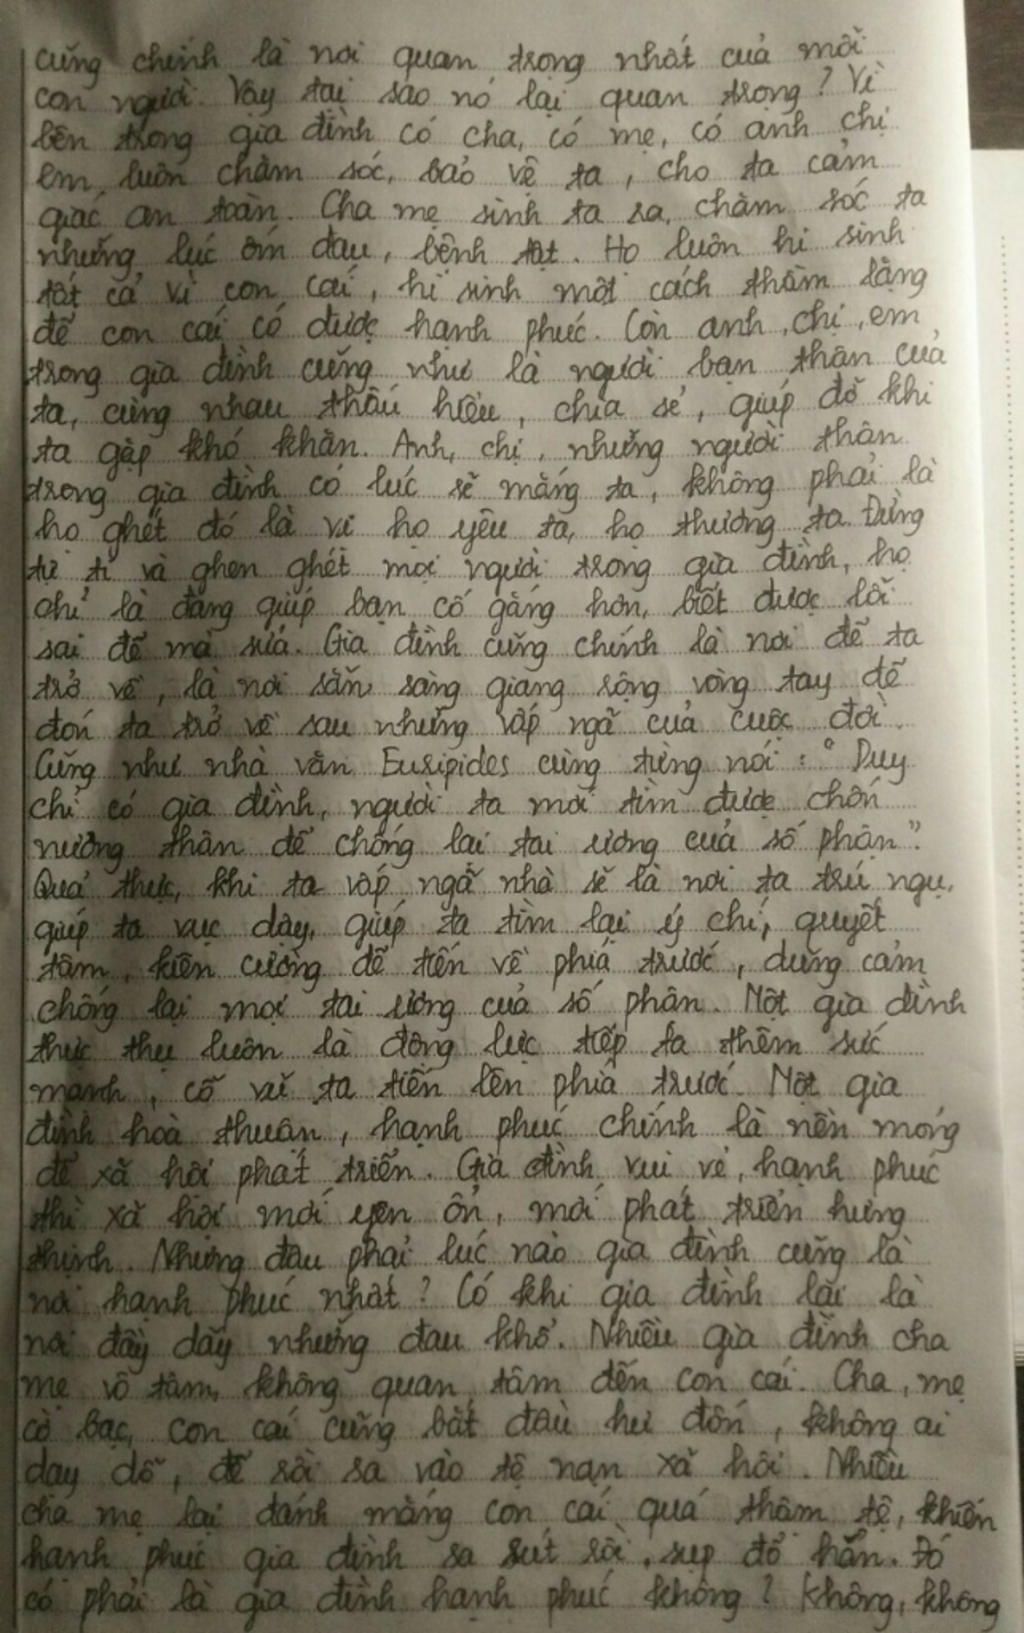 cũng chính là nơi quan trọng nhất của mỗi
con người. Vậy tại sao nó lại quan trọng? Vì
bên trong gia đình có cha, có mẹ, có anh chị
em, luôn chăm sóc, bảo vệ ta, cho ta cảm
giác an toàn. Cha mẹ sinh ta ra, chăm sóc ta
những lúc ốm đau, bệnh tật. Họ luôn hi sinh
tất cả vì con cái, hi sinh một cách thầm lặng
để con cái có được hạnh phúc. Còn anh, chị, em
trong gia đình cũng như là người bạn thân của
ta, cùng nhau thấu hiểu, chia sẻ, giúp đỡ khi
ta gặp khó khăn. Anh, chị, những người thân
trong gia đình có lúc sẽ mắng ta, không phải là
họ ghét đó là vì họ yêu ta, họ thương ta. Đừng
tự ti và ghen ghét mọi người trong gia đình, họ
chỉ là đang giúp bạn cố gắng hơn, biết được lỗi
sai để mà sửa. Gia đình cũng chính là nơi để ta
trở về, là nơi sẵn sàng giang rộng vòng tay để
đón ta trở về sau những vấp ngã của cuộc đời.
Cũng như nhà văn Euripides cùng từng nói: "Duy
chỉ có gia đình, người ta mới tìm được chốn
nương thân để chống lại tai ương của số phận".
Quả thực, khi ta vấp ngã nhà sẽ là nơi ta trú ngụ,
giúp ta vực dậy, giúp ta tìm lại ý chí, quyết
tâm, kiên cường để tiến về phía trước, dũng cảm
chống lại mọi tai ương của số phận. Một gia đình
thực thụ luôn là động lực tiếp ta thêm sức
mạnh, cỗ vũ ta tiến lên phía trước. Một gia
đình hoà thuận, hạnh phúc chính là nền móng
để xã hội phát triển. Gia đình vui vẻ, hạnh phúc
thì xã hội mới yên ổn, mới phát triển hưng
thịnh. Nhưng đâu phải lúc nào gia đình cũng là
nơi hạnh phúc nhất? Có khi gia đình lại là
nơi đầy dẫy những đau khổ. Nhiều gia đình cha
mẹ vô tâm, không quan tâm đến con cái. Cha, mẹ
cờ bạc, con cái cũng bắt đầu hư đốn, không ai
dạy dỗ, để rồi sa vào tệ nạn xã hội. Nhiều
cha mẹ lại đánh mắng con cái quá thậm tệ, khiến
hạnh phúc gia đình sa sút rồi, sụp đổ hẳn. Đó
có phải là gia đình hạnh phúc không? Không, không